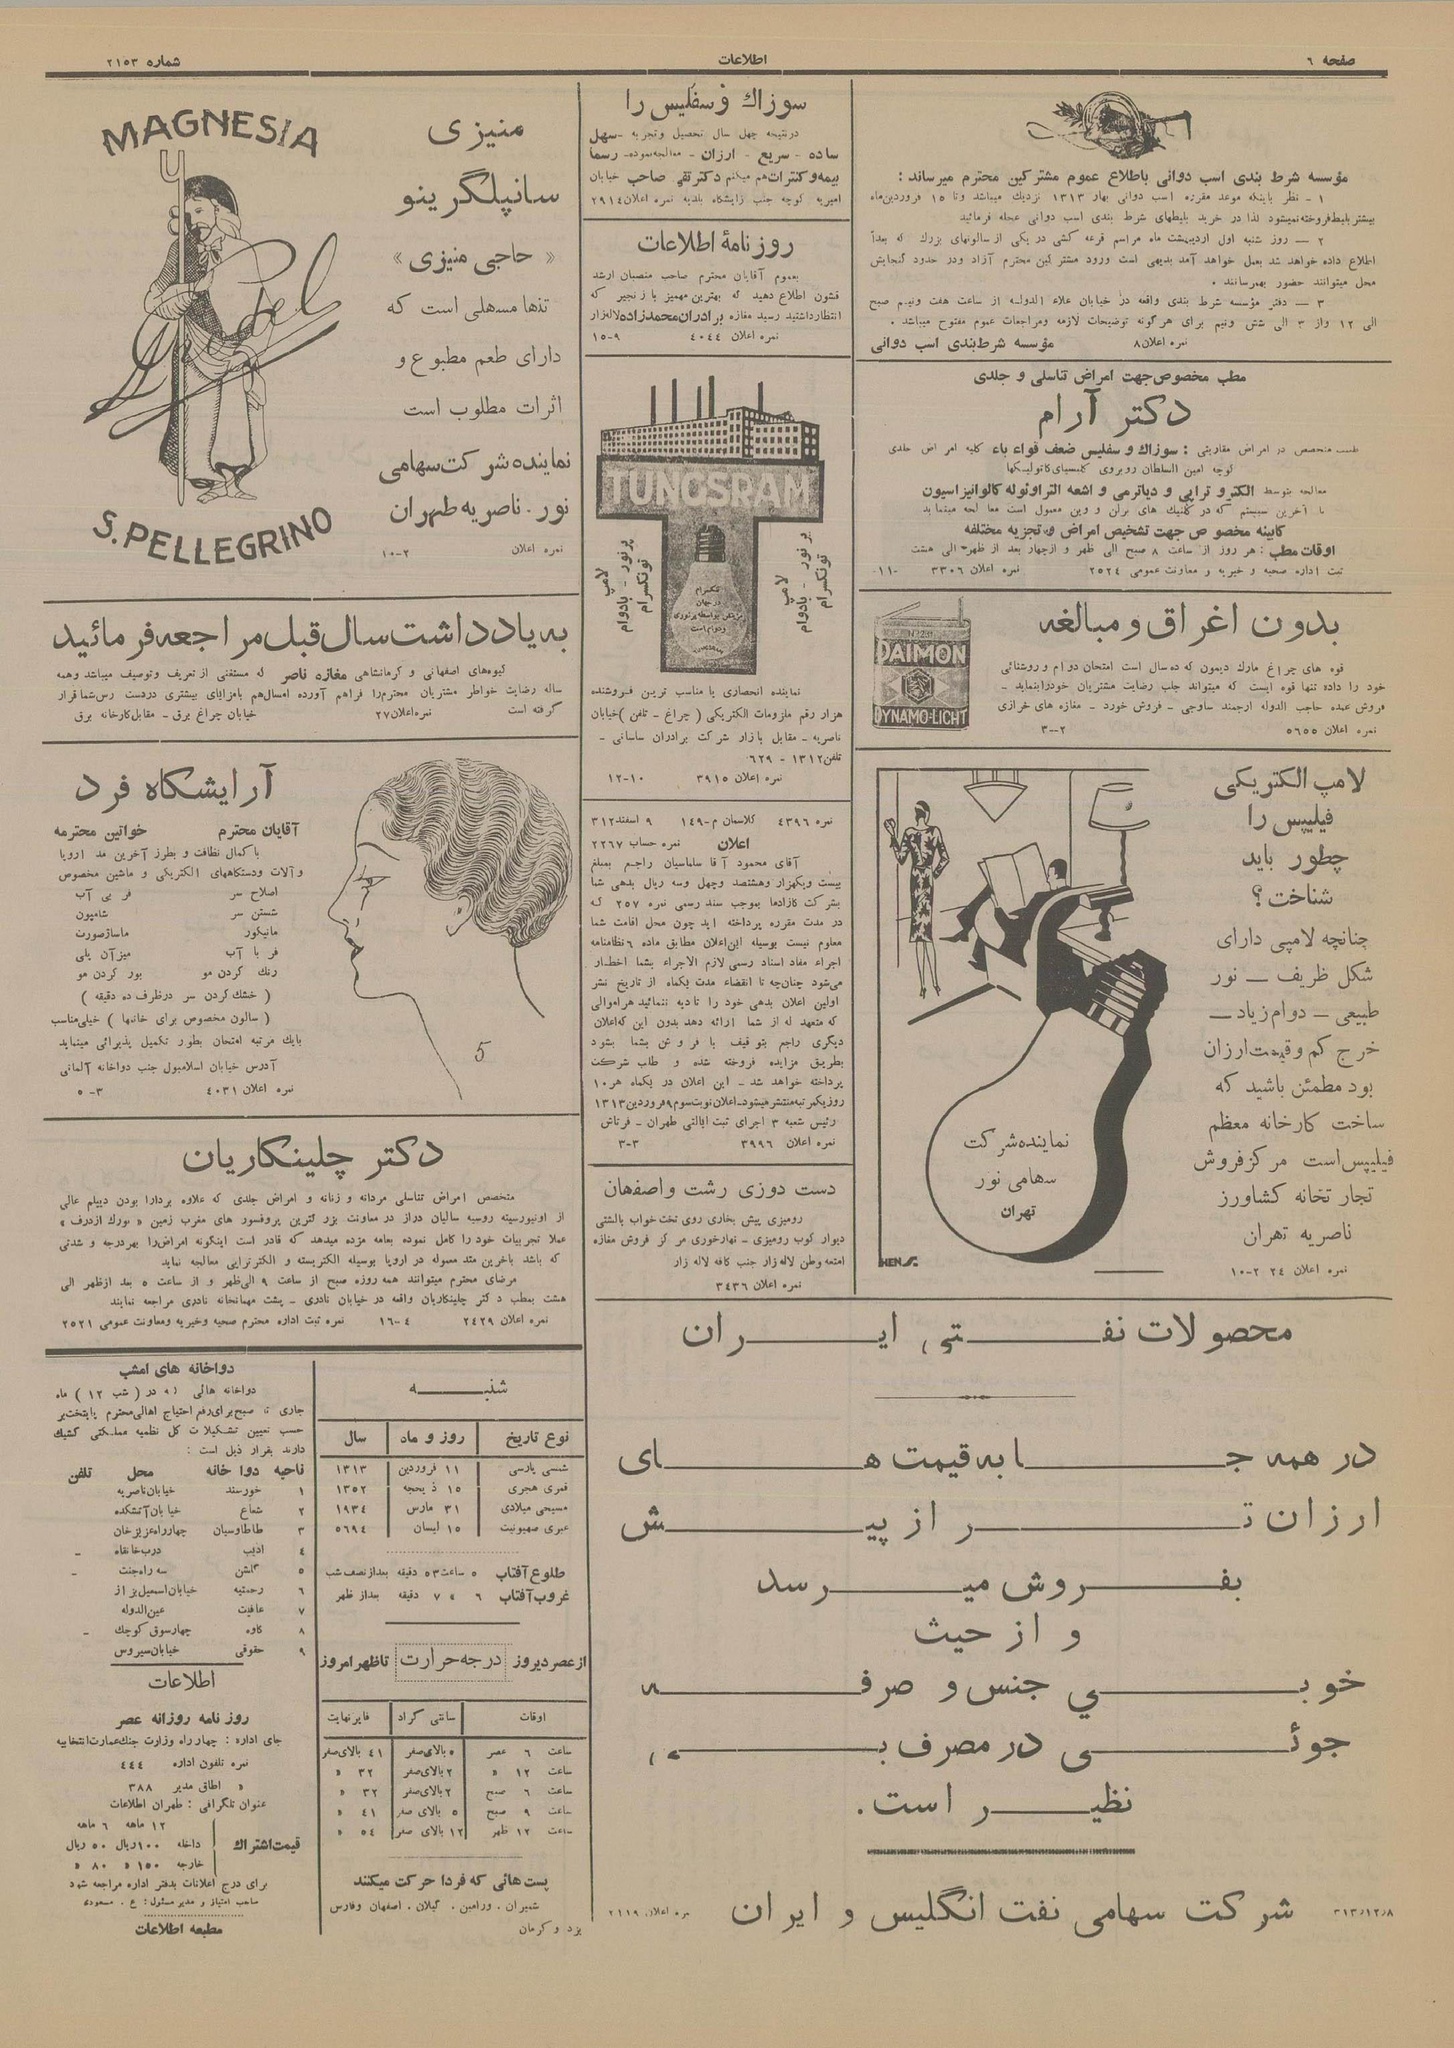 صفحه ٦
اطلاعات
شماره ٢١٥٣
مؤسسه شرط بندی اسب دوانی باطلاع عموم مشترکین محترم میرساند :
١ - نظر باینکه موعد مقرره اسب دوانی بهار ١٣١٣ نزدیك میباشد وتا ١٥ فروردین‌ماه
بیشتر بلیط فروخته نمیشود لذا در خرید بلیطهای شرط بندی اسب دوانی عجله فرمائید
٢ — روز شنبه اول اردیبهشت ماه مراسم قرعه کشی در یکی از سالونهای بزرك که بعداً
اطلاع داده خواهد شد بعمل خواهد آمد بدیهی است ورود مشترکین محترم آزاد ودر حدود گنجایش
محل میتوانند حضور بهمرسانند .
٣ — دفتر مؤسسه شرط بندی واقعه در خیابان علاء الدوله از ساعت هفت ونیم صبح
الی ١٢ واز ٣ الی شش ونیم برای هر گونه توضیحات لازمه ومراجعات عموم مفتوح میباشد .
نمره اعلان ٨ مؤسسه شرط بندی اسب دوانی
مطب مخصوص جهت امراض تناسلی و جلدی
دکتر آرام
طبیب متخصص در امراض مقاربتی : سوزاك و سفلیس ضعف قواء باء کلیه امراض جلدی
کوچه امین السلطان روبروی کلیسیای کاتولیکها
معالجه بتوسط الکترو تراپی و دیاترمی و اشعه التراویوله کالوانیزاسیون
با آخرین سیستم که در کلنیك های برلن و وین معمول است معالجه مینماید
کابینه مخصوص جهت تشخیص امراض و تجزیه مختلفه
اوقات مطب : هر روز از ساعت ٨ صبح الی ظهر و ازچهار بعد از ظهر الی هشت
ثبت اداره صحیه و خیریه و معاونت عمومی ٢٥٢٤ نمره اعلان ٣٣٠٦ -١١
بدون اغراق و مبالغه
قوه های چراغ مارك دیمون که ده سال است امتحان دوام و روشنائی
خود را داده تنها قوه ایست که میتواند جلب رضایت مشتریان خودرا بنماید -
فروش عمده حاجب الدوله ارجمند ساوجی - فروش خورد - مغازه های خرازی
نمره اعلان ٥٦٥٥ ٢--٣
DAIMON
DYNAMO-LICHT
لامپ الکتریکی
فیلیپس را
چطور باید
شناخت ؟
چنانچه لامپی دارای
شکل ظریف — نور
طبیعی — دوام زیاد —
خرج کم وقیمت ارزان
بود مطمئن باشید که
ساخت کارخانه معظم
فیلیپس است مرکز فروش
تجار تخانه کشاورز
ناصریه تهران
نمره اعلان ٢٤ ٢-١٠
نماینده شرکت
سهامی نور
تهران
سوزاك و سفلیس را
درنتیجه چهل سال تحصیل و تجربه - سهل
ساده - سریع - ارزان - معالجه نموده - رسما
بیمه و کنترات هم میکنم دکتر تقی صاحب خیابان
امیریه کوچه جنب زایشگاه بلدیه نمره اعلان ٢٩١٤
روزنامهٔ اطلاعات
بعموم آقایان محترم صاحب منصبان ارشد
قشون اطلاع دهید که بهترین مهمیز با زنجیر که
انتظار داشتید رسید مغازه برادران محمدزاده لالزار
نمره اعلان ٤٠٤٤ ٩-١٥
TUNGSRAM
لامپ
پر نور - بادوام
تونگسرام
لامپ
پر نور - بادوام
تونگسرام
نماینده انحصاری با مناسب ترین فروشنده
هزار رقم ملزومات الکتریکی ( چراغ - تلفن ) خیابان
ناصریه - مقابل بازار شرکت برادران ساسانی -
تلفن ١٣١٢ - ٦٢٩
نمره اعلان ٣٩١٥ ١٠-١٢
نمره ٤٣٩٦ کلاسمان م-١٤٩ ٩ اسفند ٣١٢
اعلان نمره حساب ٢٢٦٧
آقای محمود آقا سلماسیان راجع بمبلغ
بیست ویکهزار وهشتصد وچهل وسه ریال بدهی شما
بشرکت کازادما بموجب سند رسمی نمره ٢٥٧ که
در مدت مقرره پرداخته اید چون محل اقامت شما
معلوم نیست بوسیله این اعلان مطابق ماده ٦ نظامنامه
اجراء مفاد اسناد رسمی لازم الاجراء بشما اخطار
می‌شود چنان‌چه تا انقضاء مدت یکماه از تاریخ نشر
اولین اعلان بدهی خود را تادیه ننمائید هر اموالی
که متعهد له از شما ارائه دهد بدون این که اعلان
دیگری راجع بتوقیف یا فروش بشما بشود
بطریق مزایده فروخته شده و طلب شرکت
پرداخته خواهد شد - این اعلان در یکماه هر ١٠
روز یکمرتبه منتشر میشود - اعلان نوبت سوم ٩ فروردین ١٣١٣
رئیس شعبه ٣ اجرای ثبت ایالتی طهران - فرتاش
نمره اعلان ٣٩٩٦ ٣-٣
دست دوزی رشت و اصفهان
رومیزی پیش بخاری روی تخت خواب بالشتی
دیوار کوب رومیزی - نهارخوری مرکز فروش مغازه
امتعه وطن لاله زار جنب کافه لاله زار
نمره اعلان ٣٤٣٦
MAGNESIA
S. PELLEGRINO
منیزی
سانپلگرینو
« حاجی منیزی »
تنها مسهلی است که
دارای طعم مطبوع و
اثرات مطلوب است
نماینده شرکت سهامی
نور . ناصریه طهران
نمره اعلان ٢-١٠
به یادداشت سال قبل مراجعه فرمائید
گیوه‌های اصفهانی و کرمانشاهی مغازه ناصر که مستغنی از تعریف وتوصیف میباشد وهمه
ساله رضایت خواطر مشتریان محترم‌را فراهم آورده امسال‌هم بامزایای بیشتری دردست رس شما قرار
گرفته است نمره اعلان ٢٧ خیابان چراغ برق - مقابل کارخانه برق
آرایشگاه فرد
آقایان محترم خواتین محترمه
با کمال نظافت و بطرز آخرین مد اروپا
و آلات ودستگاههای الکتریکی و ماشین مخصوص
اصلاح سر فر بی آب
شستن سر شامپون
مانیکور ماساژصورت
فر با آب میزآن پلی
رنك کردن مو بور کردن مو
( خشك کردن سر درظرف ده دقیقه )
( سالون مخصوص برای خانمها ) خیلی مناسب
بایك مرتبه امتحان بطور تکمیل پذیرائی مینماید
آدرس خیابان اسلامبول جنب دواخانه آلمانی
نمره اعلان ٤٠٣١ ٣-٥
دکتر چلینکاریان
متخصص امراض تناسلی مردانه و زنانه و امراض جلدی که علاوه بردارا بودن دیپلم عالی
از اونیورسیته روسیه سالیان دراز در معاونت بزرگترین پروفسور های مغرب زمین
عملا تجربیات خود را کامل نموده بعامه مژده میدهد که قادر است اینگونه امراض‌را بهردرجه و شدتی
که باشد باخرین متد معموله در اروپا بوسیله الکتریسته و الکتروتراپی معالجه نماید
مرضای محترم میتوانند همه روزه صبح از ساعت ٩ الی ظهر و از ساعت ٥ بعد ازظهر الی
هشت بمطب دکتر چلینکاریان واقعه در خیابان نادری - پشت مهمانخانه نادری مراجعه نمایند
نمره اعلان ٢٤٢٩ ٤-١٦ نمره ثبت اداره محترم صحیه وخیریه ومعاونت عمومی ٢٥٢١
محصولات نفتی ایران
در همه جا به قیمت های
ارزان تر از پیش
بفروش میرسد
و از حیث
خوبی جنس و صرفه
جوئی در مصرف بی
نظیر است.
شرکت سهامی نفت انگلیس و ایران
٣١٣/١٢/٨
نمره اعلان ٢١١٩
شنبه
نوع تاریخ روز و ماه سال
شمسی پارسی ١١ فروردین ١٣١٣
قمری هجری ١٥ ذیحجه ١٣٥٢
مسیحی میلادی ٣١ مارس ١٩٣٤
عبری صهیونیت ١٥ ایسان ٥٦٩٤
طلوع آفتاب ٥ ساعت ٥٣ دقیقه بعداز نصف شب
غروب آفتاب ٦ » ٧ دقیقه بعداز ظهر
ازعصر دیروز درجه حرارت تاظهر امروز
اوقات سانتی گراد فارنهایت
ساعت ٦ عصر ٥ بالای صفر ٤١ بالای صفر
ساعت ١٢ » ٢ بالای صفر ٣٢ »
ساعت ٦ صبح ٢ بالای صفر ٣٢ »
ساعت ٩ صبح ٥ بالای صفر ٤١ »
ساعت ١٢ ظهر ١٢ بالای صفر ٥٤ »
پست هائی که فردا حرکت میکنند
شمیران . ورامین . گیلان . اصفهان وفارس
یزد و کرمان
دواخانه های امشب
دواخانه هائی که در ( شب ١٢ ) ماه
جاری تا صبح برای رفع احتیاج اهالی محترم پایتخت بر
حسب تعیین تشکیلات کل نظمیه مملکتی کشیك
دارند بقرار ذیل است :
ناحیه دوا خانه محل تلفن
١ خورسند خیابان ناصریه
٢ شعاع خیابان آتشکده
٣ طاطاوسیان چهارراه عزیزخان
٤ ادیب درب خانقاه -
٥ گلشن سه راه جنت -
٦ رحمتیه خیابان اسمعیل بزاز
٧ عافیت عین الدوله
٨ کاوه چهارسوق کوچك -
٩ حقوقی خیابان سیروس
اطلاعات
روزنامه روزانه عصر
جای اداره : چهارراه وزارت جنك عمارت انتخابیه
نمره تلفون اداره ٤٤٤
» اطاق مدیر ٣٨٨
عنوان تلگرافی : طهران اطلاعات
١٢ ماهه ٦ ماهه
قیمت اشتراك داخله ١٠٠ ریال ٥٠ ریال
خارجه ١٥٠ » ٨٠ »
برای درج اعلانات بدفتر اداره مراجعه شود
صاحب امتیاز و مدیر مسئول : ع . مسعودی
مطبعه اطلاعات